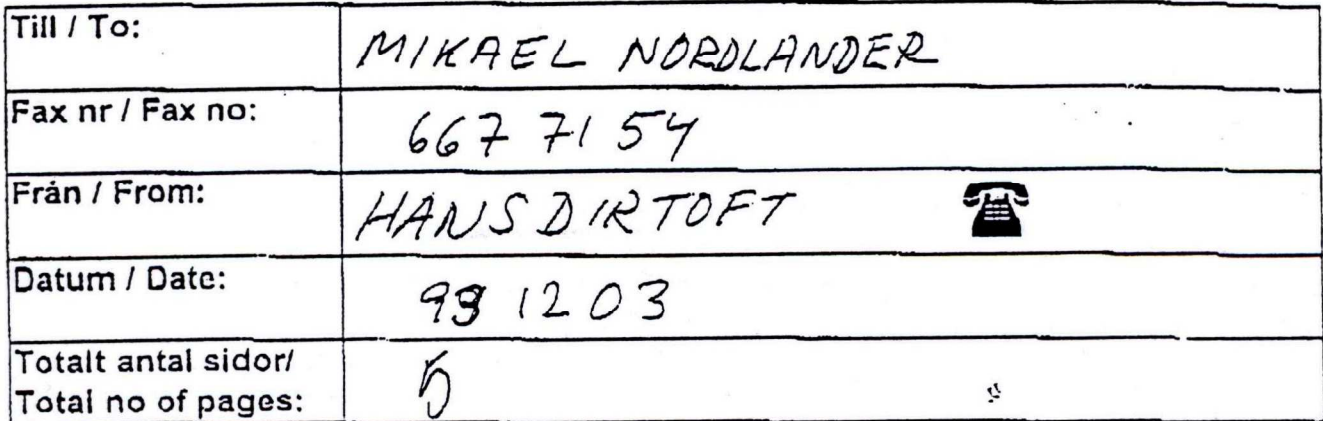 Till / To:
MIKAEL NORDLANDER
Fax nr / Fax no:
667 71 54
Från / From:
HANS DIRTOFT
Datum / Date:
99 12 03
Totalt antal sidor/
Total no of pages:
5